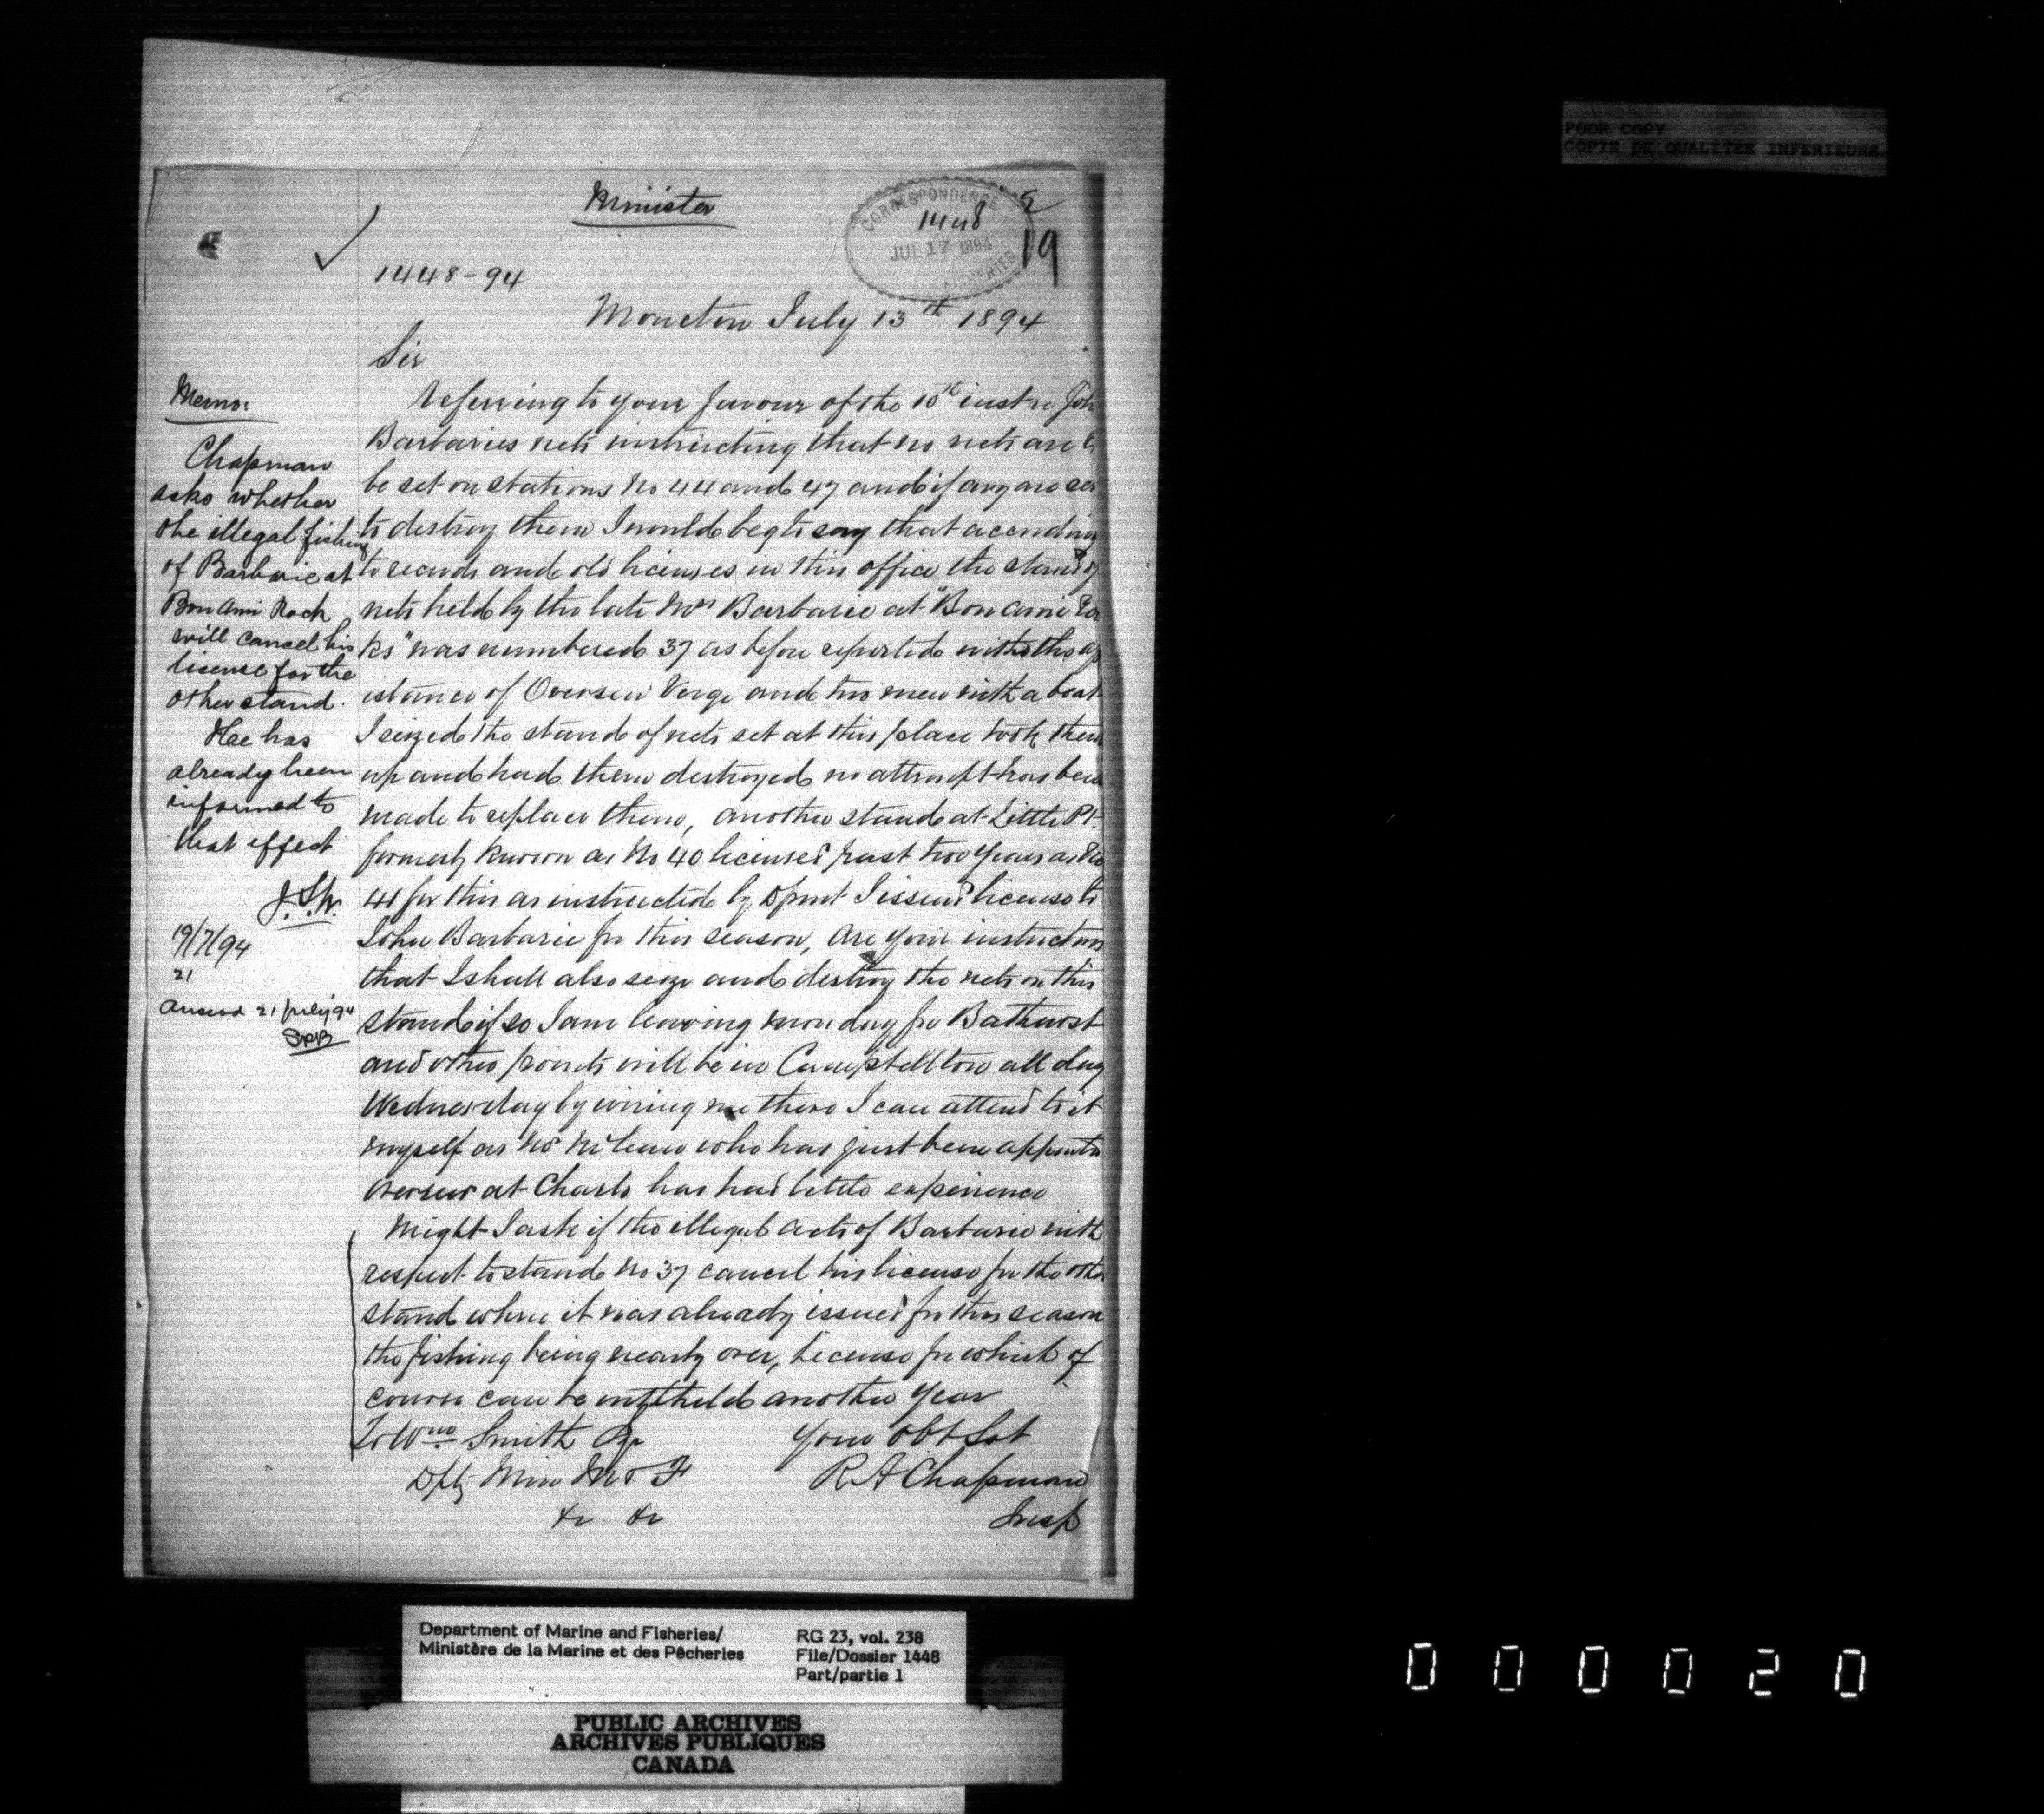 POOR COPY
COPIE DE QUALITEE INFERIEURE
Minister
CORRESPONDENCE
1448
JUL 17 1894
FISHERIES
19
1448-94
Moncton July 13th 1894
Sir
Referring to your favour of the 10th inst re Joh
Barbaries nets instructing that no nets are t
be set on stations No 44 and 47 and if any are set
to destroy them I would beg to say that according
to records and old licenses in this office the stand of
nets held by the late Mrs Barbarie at "Bon ami Ro
ks" was numbered 37 as before reported with the as
istance of Overseer Verge and two men with a boat
I seized the stand of nets set at this place took them
up and had them destroyed no attempt has been
made to replace them, another stand at Little Pt.
formerly known as No 40 licensed past two years as No
41 for this as instructed by Dpmt I issued license to
John Barbarie for this season, are your instructions
that I shall also seize and destroy the nets on this
stand if so I am leaving monday for Bathurst
and other points will be in Campbellton all day
Wednesday by wiring me there I can attend to it
myself as Mr McLean who has just been appointed
Overseer at Charlo has had little experience
Might I ask if the illegal acts of Barbarie with
respect to stand No 37 cancel his license for the other
stand where it was already issued for this season
the fishing being nearly over, License for which of
course can be withheld another year
To Wm Smith Esq
Dpty Min M & F
&c &c
Your Obt Svt
R A Chapman
Insp
Memo:
Chapman
asks whether
the illegal fishing
of Barbarie at
Bon Ami Rock
will cancel his
license for the
other stand.
He has
already been
informed to
that effect
J.S.W.
19/7/94
21
Answd 21 July 94
Department of Marine and Fisheries/
Ministère de la Marine et des Pêcheries
RG 23, vol. 238
File/Dossier 1448
Part/partie 1
PUBLIC ARCHIVES
ARCHIVES PUBLIQUES
CANADA
000020